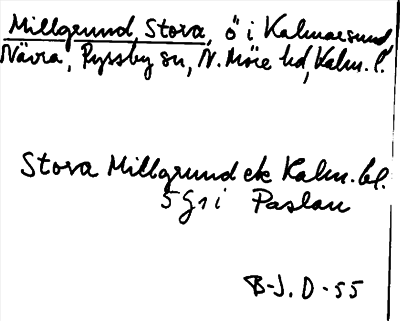 Millgrund, Stora, ö i Kalmarsund
Nävra, Ryssby sn, N. Möre hd, Kalm. l.
Stora Millgrund ek Kalm. bl.
5 g 1 i Paslau
B-J. D - 55